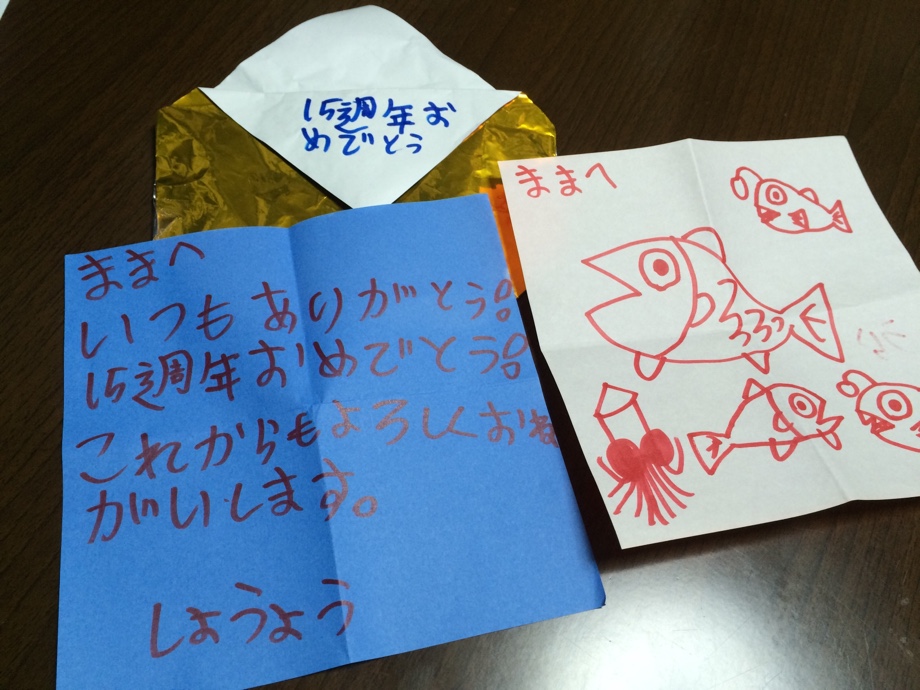 15週年お
めでとう
ままへ
いつもありがとう!
15週年おめでとう!
これからもよろしくおね
がいします。
しょうよう
ままへ